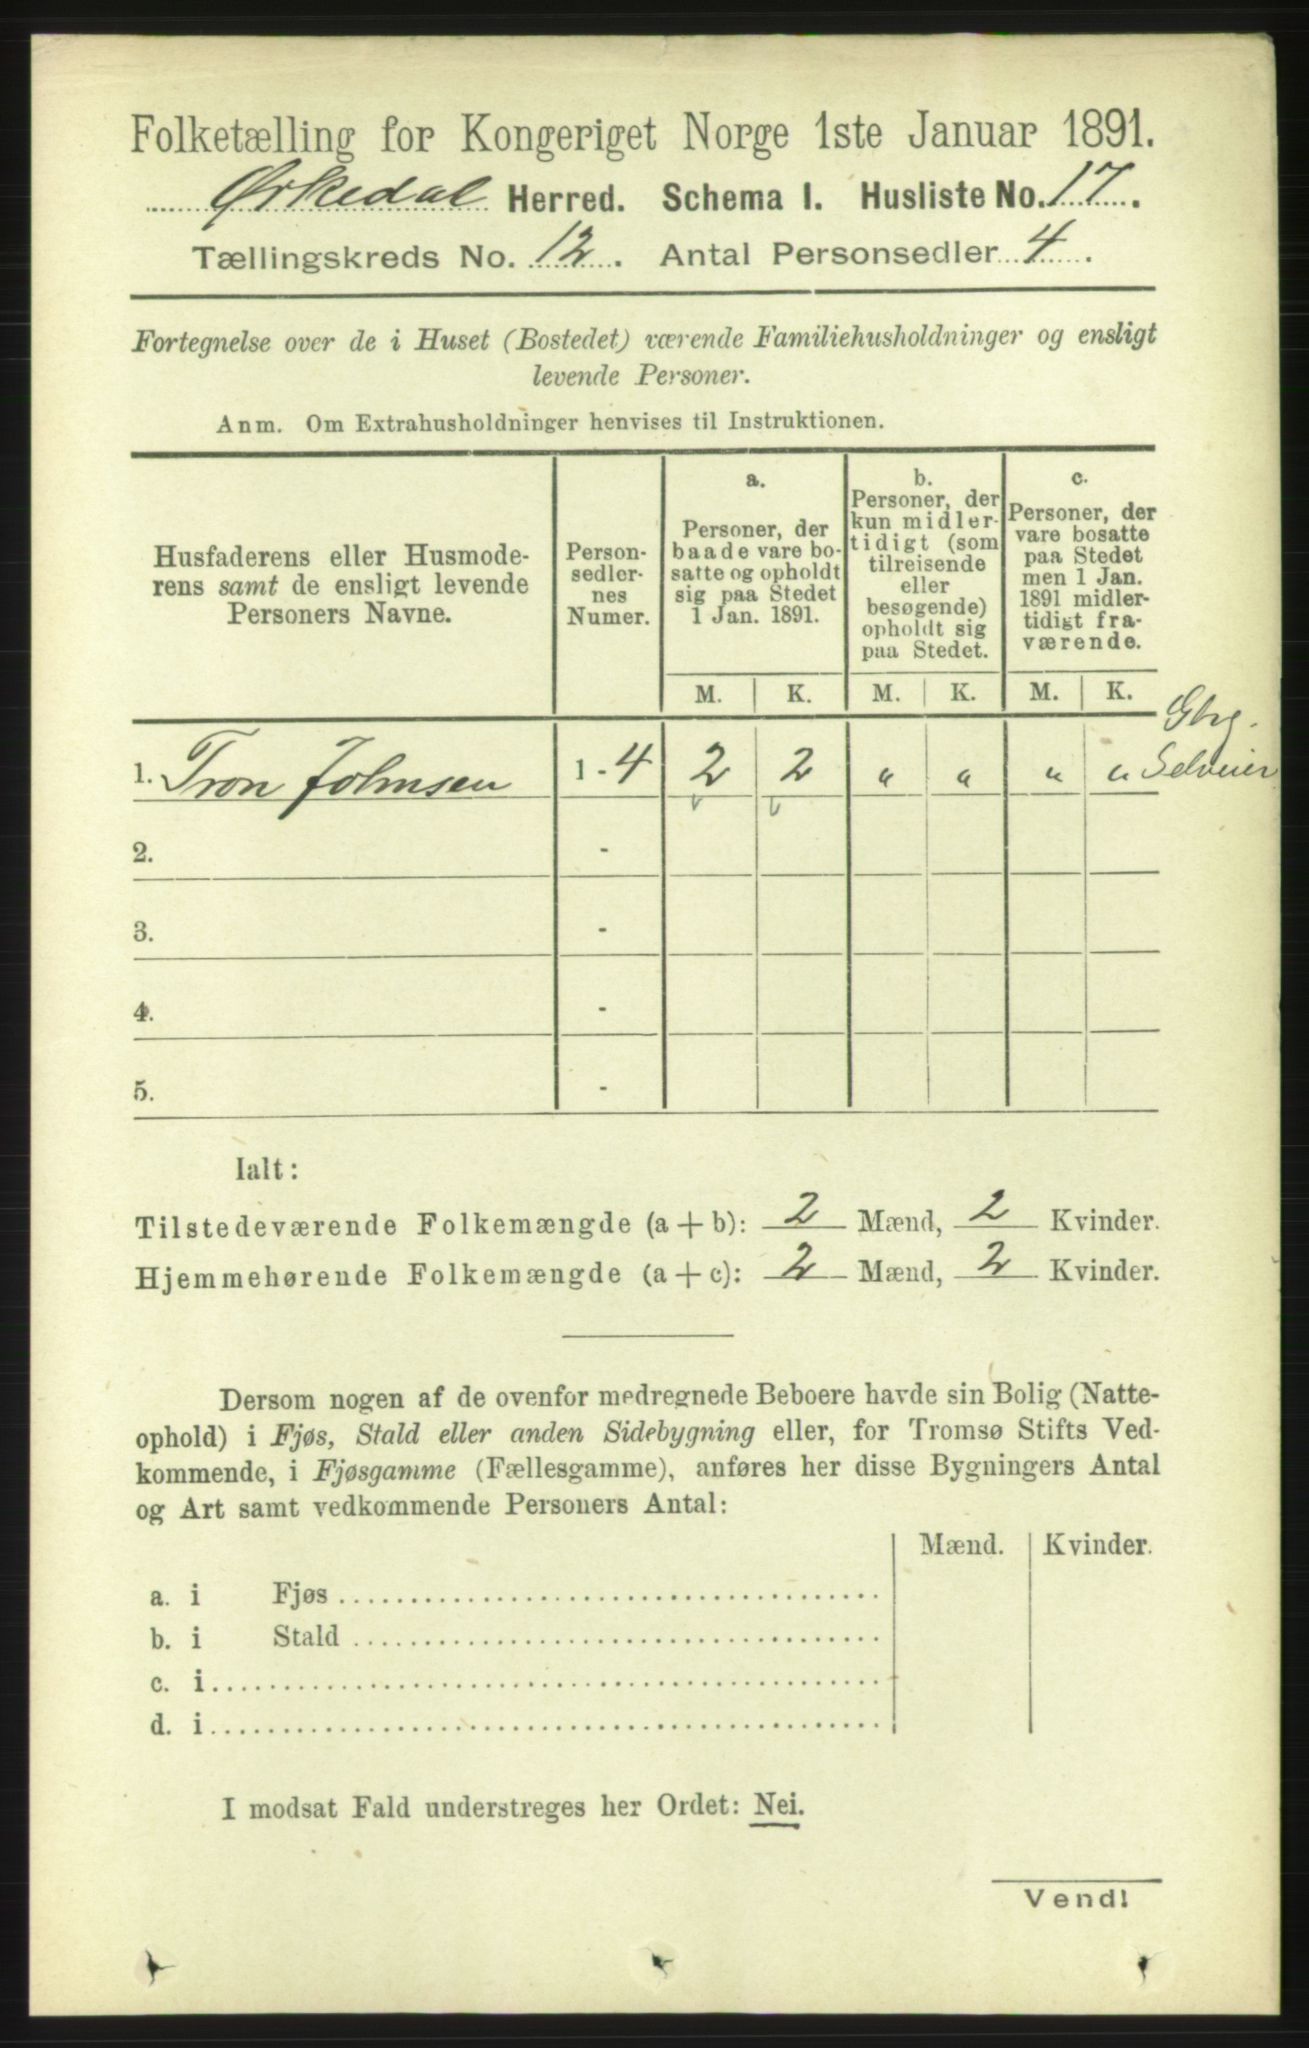 Folketælling for Kongeriget Norge 1ste Januar 1891.
Ørkedal Herred. Schema I. Husliste No. 17.
Tællingskreds No. 12. Antal Personsedler 4.
Fortegnelse over de i Huset (Bostedet) værende Familiehusholdninger og ensligt
levende Personer.
Anm. Om Extrahusholdninger henvises til Instruktionen.
Husfaderens eller Husmode-
rens samt de ensligt levende
Personers Navne.
Person-
sedler-
nes
Numer.
a.
Personer, der
baade vare bo-
satte og opholdt
sig paa Stedet
1 Jan. 1891.
b.
Personer, der
kun midler-
tidigt (som
tilreisende
eller
besøgende)
opholdt sig
paa Stedet.
c.
Personer, der
vare bosatte
paa Stedet
men 1 Jan.
1891 midler-
tidigt fra-
værende.
M. K. M. K. M. K.
Gbr.
1. Tron Johnsen 1 - 4 2 2 " " " " Selveier
2. -
3. -
4. -
5. -
Ialt:
Tilstedeværende Folkemængde (a + b): 2 Mænd, 2 Kvinder.
Hjemmehørende Folkemængde (a + c): 2 Mænd, 2 Kvinder.
Dersom nogen af de ovenfor medregnede Beboere havde sin Bolig (Natte-
ophold) i Fjøs, Stald eller anden Sidebygning eller, for Tromsø Stifts Ved-
kommende, i Fjøsgamme (Fællesgamme), anføres her disse Bygningers Antal
og Art samt vedkommende Personers Antal:
Mænd. Kvinder.
a. i Fjøs
b. i Stald
c. i
d. i
I modsat Fald understreges her Ordet: Nei.
Vend!